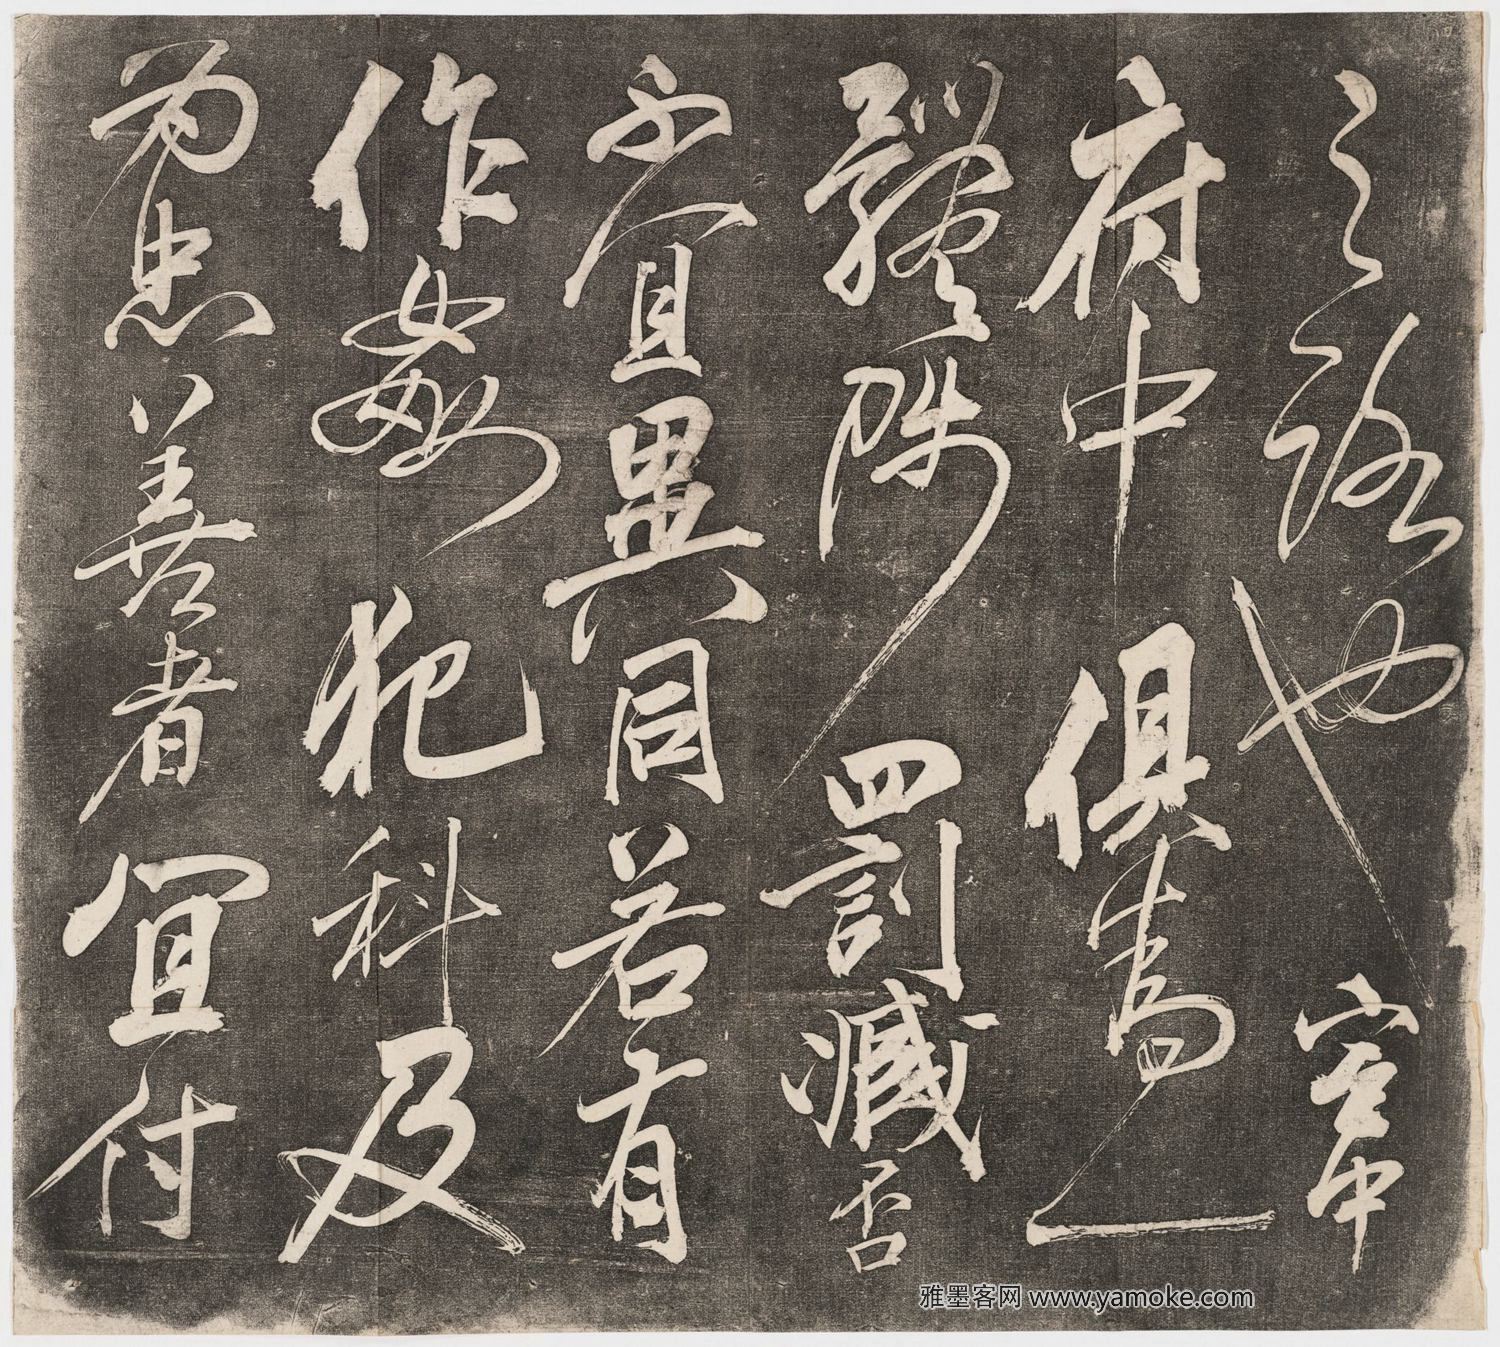 之路也宮中
府中俱為一
體陟罰臧否
不宜異同若有
作姦犯科及
為忠善者宜付
雅墨客网 www.yamoke.com